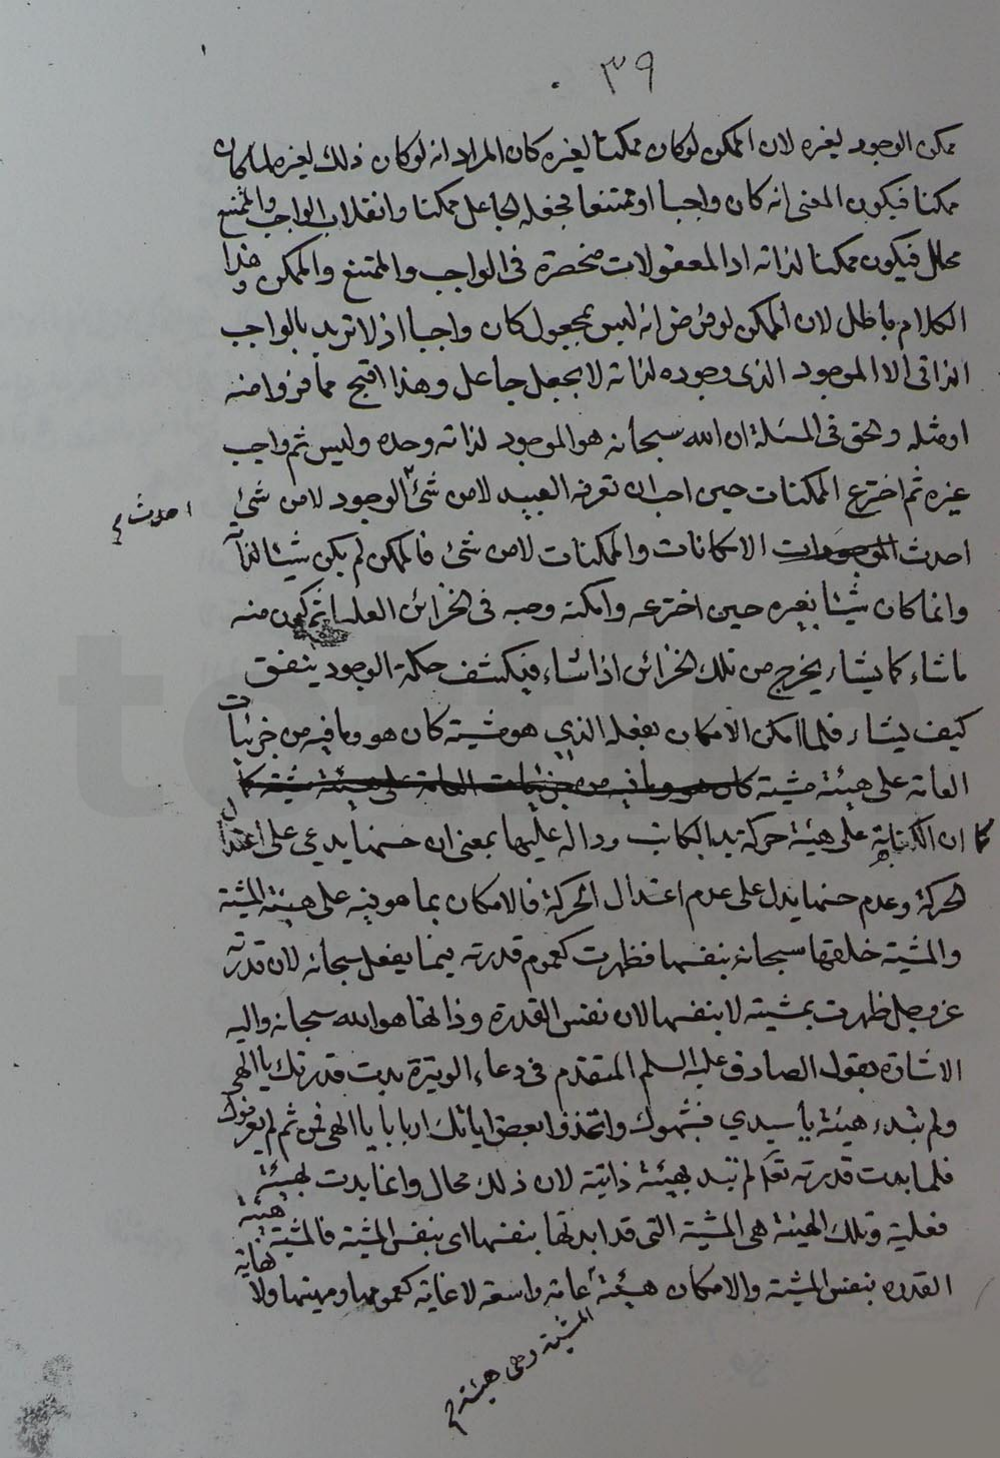 ٣٩
ممكن الوجود لغيره لان الممكن لو كان ممكنا لغيره كان المراد انه لو كان ذلك لغيره لما كان
ممكنا فيكون المعنى انه كان واجبا او ممتنعا فجعله الجاعل ممكنا وانقلاب الواجب والممتنع
محال فيكون ممكنا لذاته اذ المعقولات منحصرة فى الواجب والممتنع والممكن وهذا
الكلام باطل لان الممكن لو فرض انه ليس بمجعول كان واجبا اذ لا نريد بالواجب
الذاتى الا الموجود الذى وجوده لذاته لا بجعل جاعل وهذا اقبح مما فروا منه
او مثله والحق فى المسئلة ان الله سبحانه هو الموجود لذاته وحده وليس ثم واجب
غيره ثم اخترع الممكنات حين احب ان تعرفه العبيد لا من شئ الوجود لا من شئ
احدث م
احدث الموجودات الامكانات والممكنات لا من شئ فالممكن لم يكن شيئا لذاته
وانما كان شيئا بغيره حين اخترعه وامكنه وصبه فى الخزائن العليا ثم كون منه
ما شاء كما يشاء يخرج من تلك الخزائن اذا شاء فيكشف حكمة الوجود ينفق
كيف يشاء فلما امكن الامكان بفعله الذي هو مشيته كان هو وما فيه من جزئيات
العامة على هيئة مشيته كان هو وما فيه من جزئيات العامة على هيئة مشيته كما
كما ان الكتابة على هيئة حركة يد الكاتب ودالة عليها بمعنى ان حسنها يدعى على اعتدال
الحركة وعدم حسنها يدل على عدم اعتدال الحركة فالامكان بما هو فيه على هيئة المشية
والمشية خلقها سبحانه بنفسها فظهرت كعموم قدرته فيما يفعل سبحانه لان قدرته
عز وجل ظهرت بمشيته لا بنفسها لان نفس القدرة وذاتها هو الله سبحانه واليه
الاشارة بقول الصادق عليه السلم المتقدم فى دعاء الوتيرة بدت قدرتك يا الهى
ولم تبد هيئة يا سيدي فشبهوك واتخذوا بعض اياتك اربابا يا الهى فمن ثم لم يعرفوك
فلما بدت قدرته تعالى لم تبد بهيئة ذاتية لان ذلك محال وانما بدت بهيئة
فعلية وتلك الهيئة هى المشية التى قد ابدتها بنفسها اى بنفس المشية فالمشية هيئة
القدره بنفس المشية والامكان هيئة عامة واسعة لا غاية كعمومها ومهيتها ولا نهاية
المشية وهى هيئة م